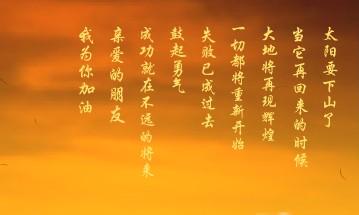 太阳要下山了
当它再回来的时候
大地将再现辉煌
一切都将重新开始
失败已成过去
鼓起勇气
成功就在不远的将来
亲爱的朋友
我为你加油